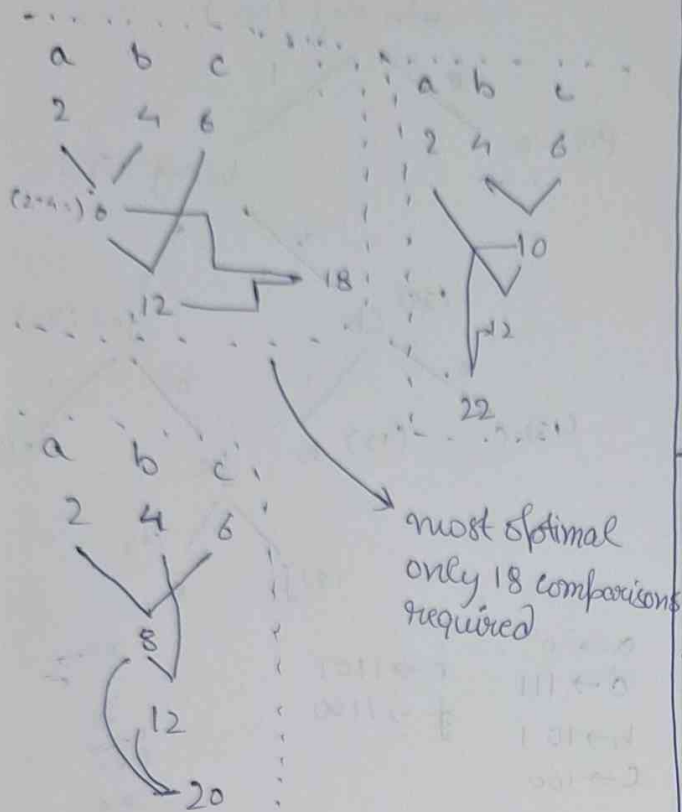 a b c
2 4 6
(2+4=) 6
18
12
a b c
2 4 6
10
12
22
a b c
2 4 6
8
12
20
most optimal
only 18 comparisons
required